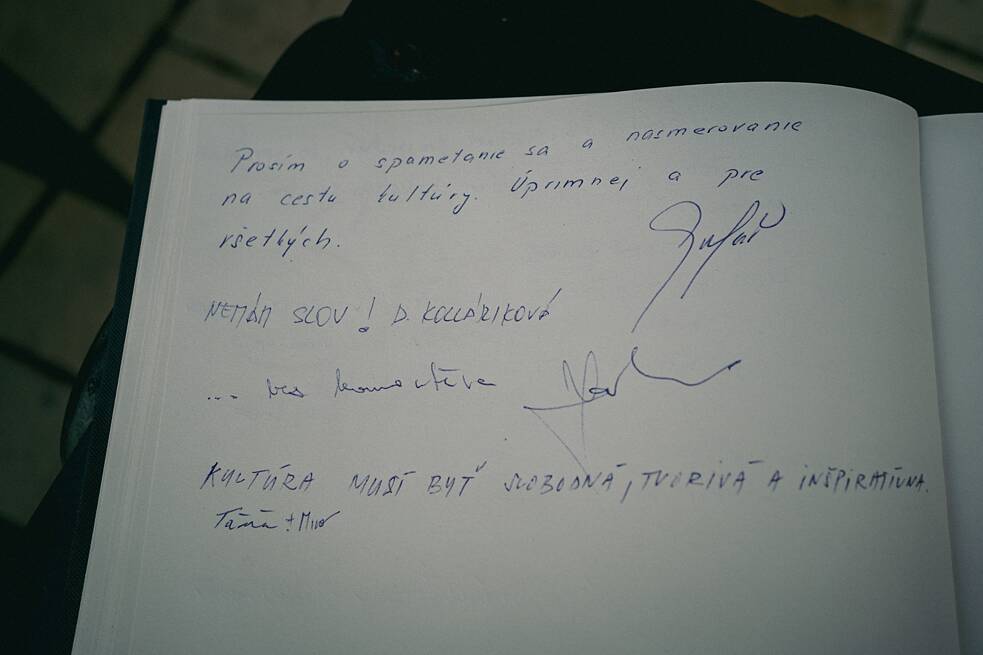 Prosím o spametanie sa a nasmerovanie
na cestu kultúry. Úprimnej a pre
všetkých.
NEMÁM SLOV! D. KOLLÁRIKOVÁ
... bez komentára
KULTÚRA MUSÍ BYŤ SLOBODNÁ, TVORIVÁ A INŠPIRATÍVNA.
Táňa + Miro